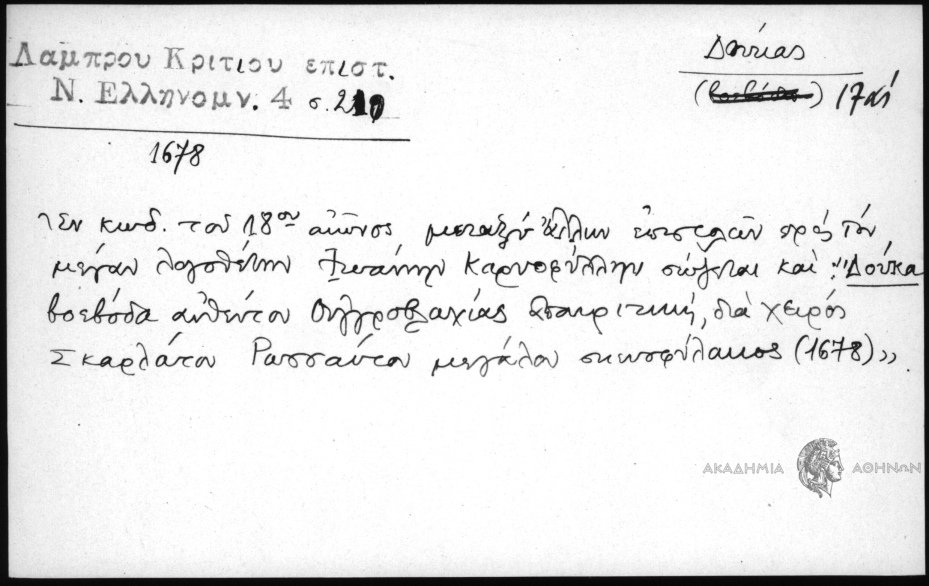 Λαμπρου Κριτιου επιστ.
Ν. Ελληνομν. 4 σ. 210
1678
Δούκας
17 αἰ
Ἐν κωδ. τοῦ 18ου αἰῶνος μεταξὺ ἄλλων ἐπιστολῶν πρὸς τὸν
μέγαν λογοθέτην Ἰωάννην Καρυοφύλλην σώζεται καὶ: "Δούκα
βοεβόδα αὐθέντου Οὐγγροβλαχίας ἀποκριτική, διὰ χειρὸς
Σκαρλάτου Ρωσσαίτου μεγάλου σκευοφύλακος (1678)»
ΑΚΑΔΗΜΙΑ ΑΘΗΝΩΝ